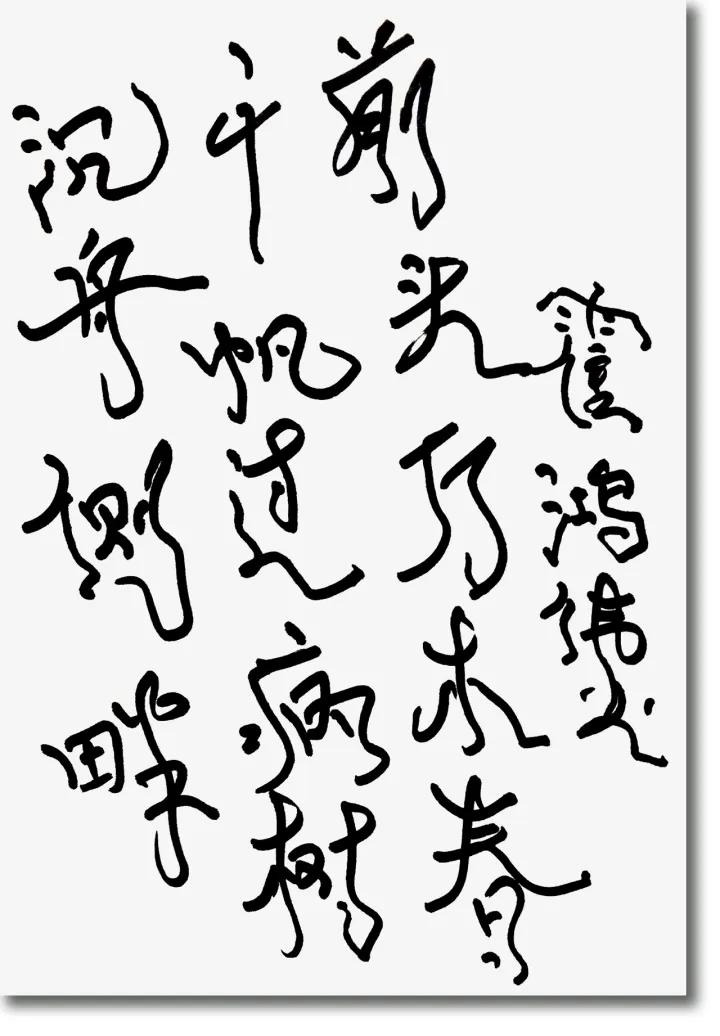 沉舟侧畔
千帆过病树
前头万木春
鸿